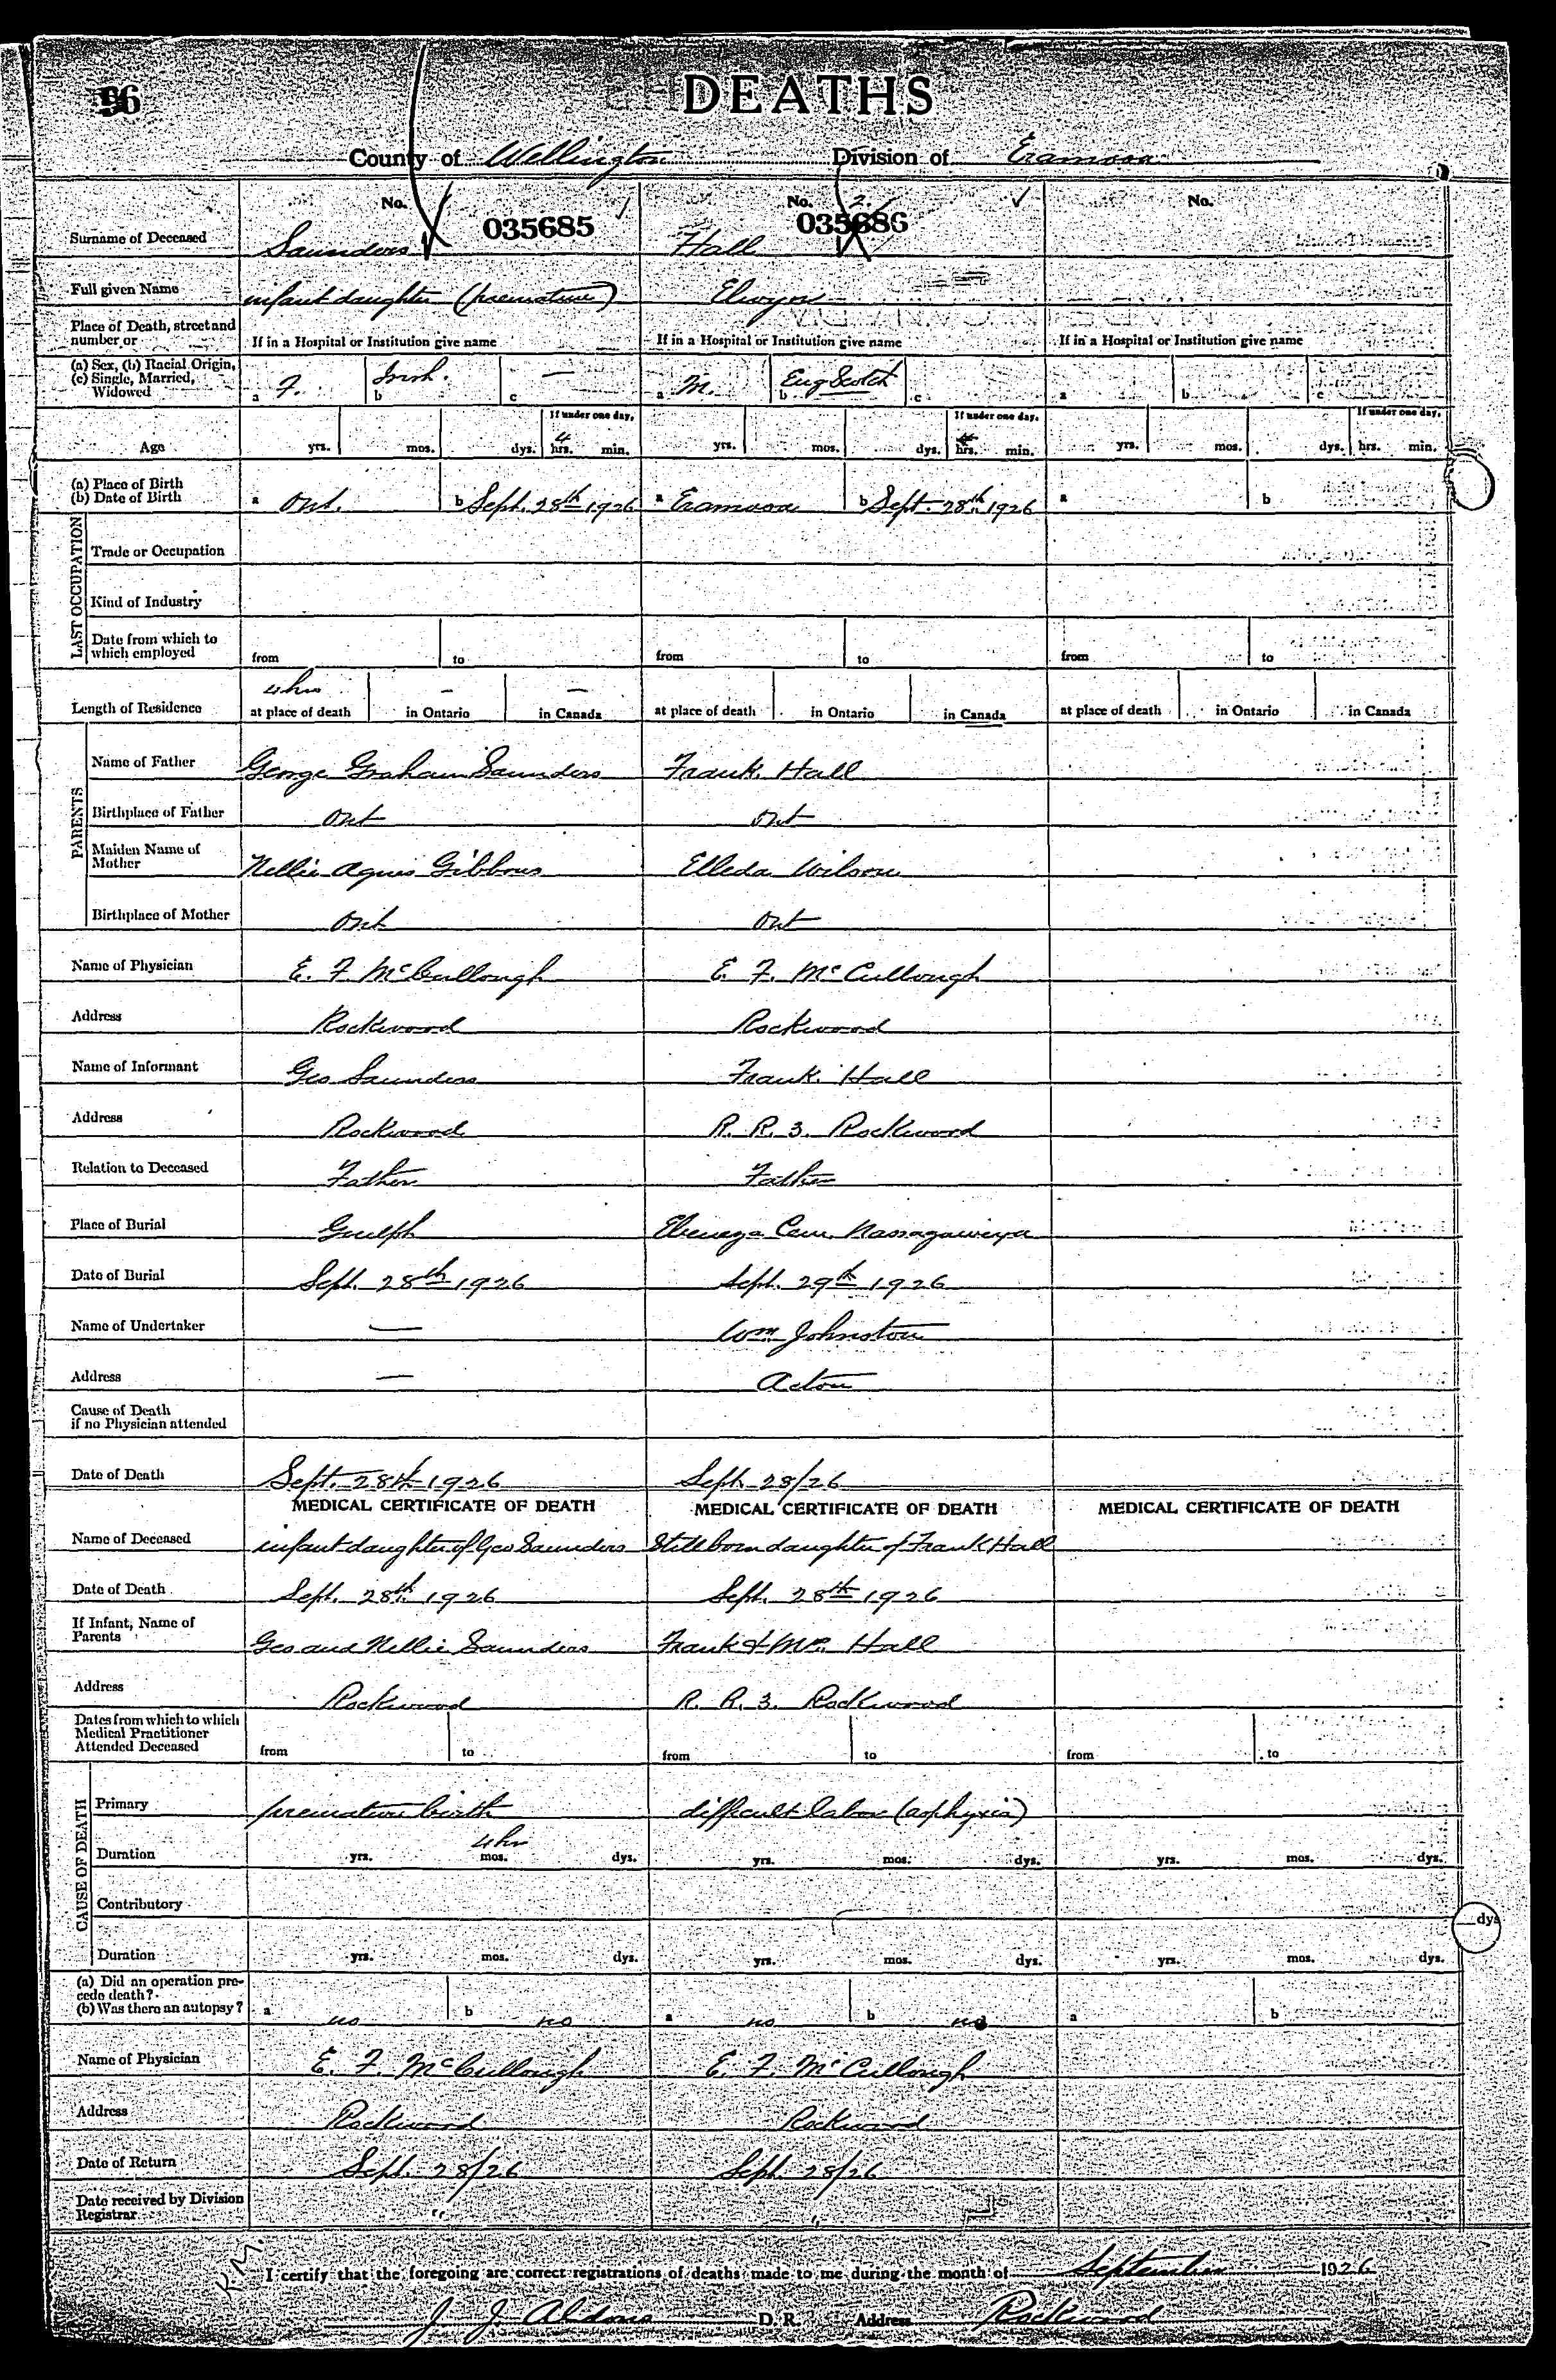 56
DEATHS
County of Wellington Division of Eramosa
No. 035685 No. 2. 035686 No.
Surname of Deceased Saunders Hall
Full given Name infant daughter (premature) Elwyn
Place of Death, street and number or If in a Hospital or Institution give name If in a Hospital or Institution give name If in a Hospital or Institution give name
(a) Sex, (b) Racial Origin, (c) Single, Married, Widowed a F. b Irish. c — a M. b Eng Scotch c a b c
If under one day, If under one day, If under one day,
Age yrs. mos. dys. 4 hrs. min. yrs. mos. dys. hrs. min. yrs. mos. dys. hrs. min.
(a) Place of Birth (b) Date of Birth a Ont. b Sept. 28th 1926 a Eramosa b Sept. 28th 1926 a b
LAST OCCUPATION
Trade or Occupation
Kind of Industry
Date from which to which employed from to from to from to
Length of Residence 4 hrs at place of death — in Ontario — in Canada at place of death in Ontario in Canada at place of death in Ontario in Canada
PARENTS
Name of Father George Graham Saunders Frank Hall
Birthplace of Father Ont Ont
Maiden Name of Mother Nellie Agnes Gibbons Elleda Wilson
Birthplace of Mother Ont Ont
Name of Physician E. F. McCullough E. F. McCullough
Address Rockwood Rockwood
Name of Informant Geo Saunders Frank Hall
Address Rockwood R. R. 3. Rockwood
Relation to Deceased Father Father
Place of Burial Guelph Ebenezer Cem. Nassagaweya
Date of Burial Sept. 28th 1926 Sept. 29th 1926
Name of Undertaker — Wm. Johnston
Address — Acton
Cause of Death if no Physician attended
Date of Death Sept. 28th 1926 Sept. 28/26
MEDICAL CERTIFICATE OF DEATH MEDICAL CERTIFICATE OF DEATH MEDICAL CERTIFICATE OF DEATH
Name of Deceased infant daughter of Geo Saunders Stillborn daughter of Frank Hall
Date of Death Sept. 28th 1926 Sept. 28th 1926
If Infant, Name of Parents Geo and Nellie Saunders Frank & Mrs. Hall
Address Rockwood R. R. 3. Rockwood
Dates from which to which Medical Practitioner Attended Deceased from to from to from to
CAUSE OF DEATH
Primary premature birth difficult labor (asphyxia)
Duration yrs. 4 hr mos. dys. yrs. mos. dys. yrs. mos. dys.
Contributory
dys
Duration yrs. mos. dys. yrs. mos. dys. yrs. mos. dys.
(a) Did an operation precede death? (b) Was there an autopsy? a no b no a no b no a b
Name of Physician E. F. McCullough E. F. McCullough
Address Rockwood Rockwood
Date of Return Sept. 28/26 Sept. 28/26
Date received by Division Registrar " "
R.M.
I certify that the foregoing are correct registrations of deaths made to me during the month of September 1926
J. J. Aldous D. R. Address Rockwood